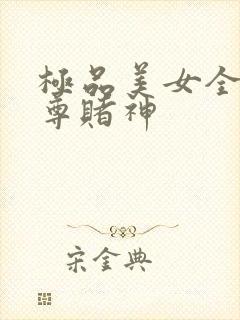 極品美女全
尊賭神
宋金典